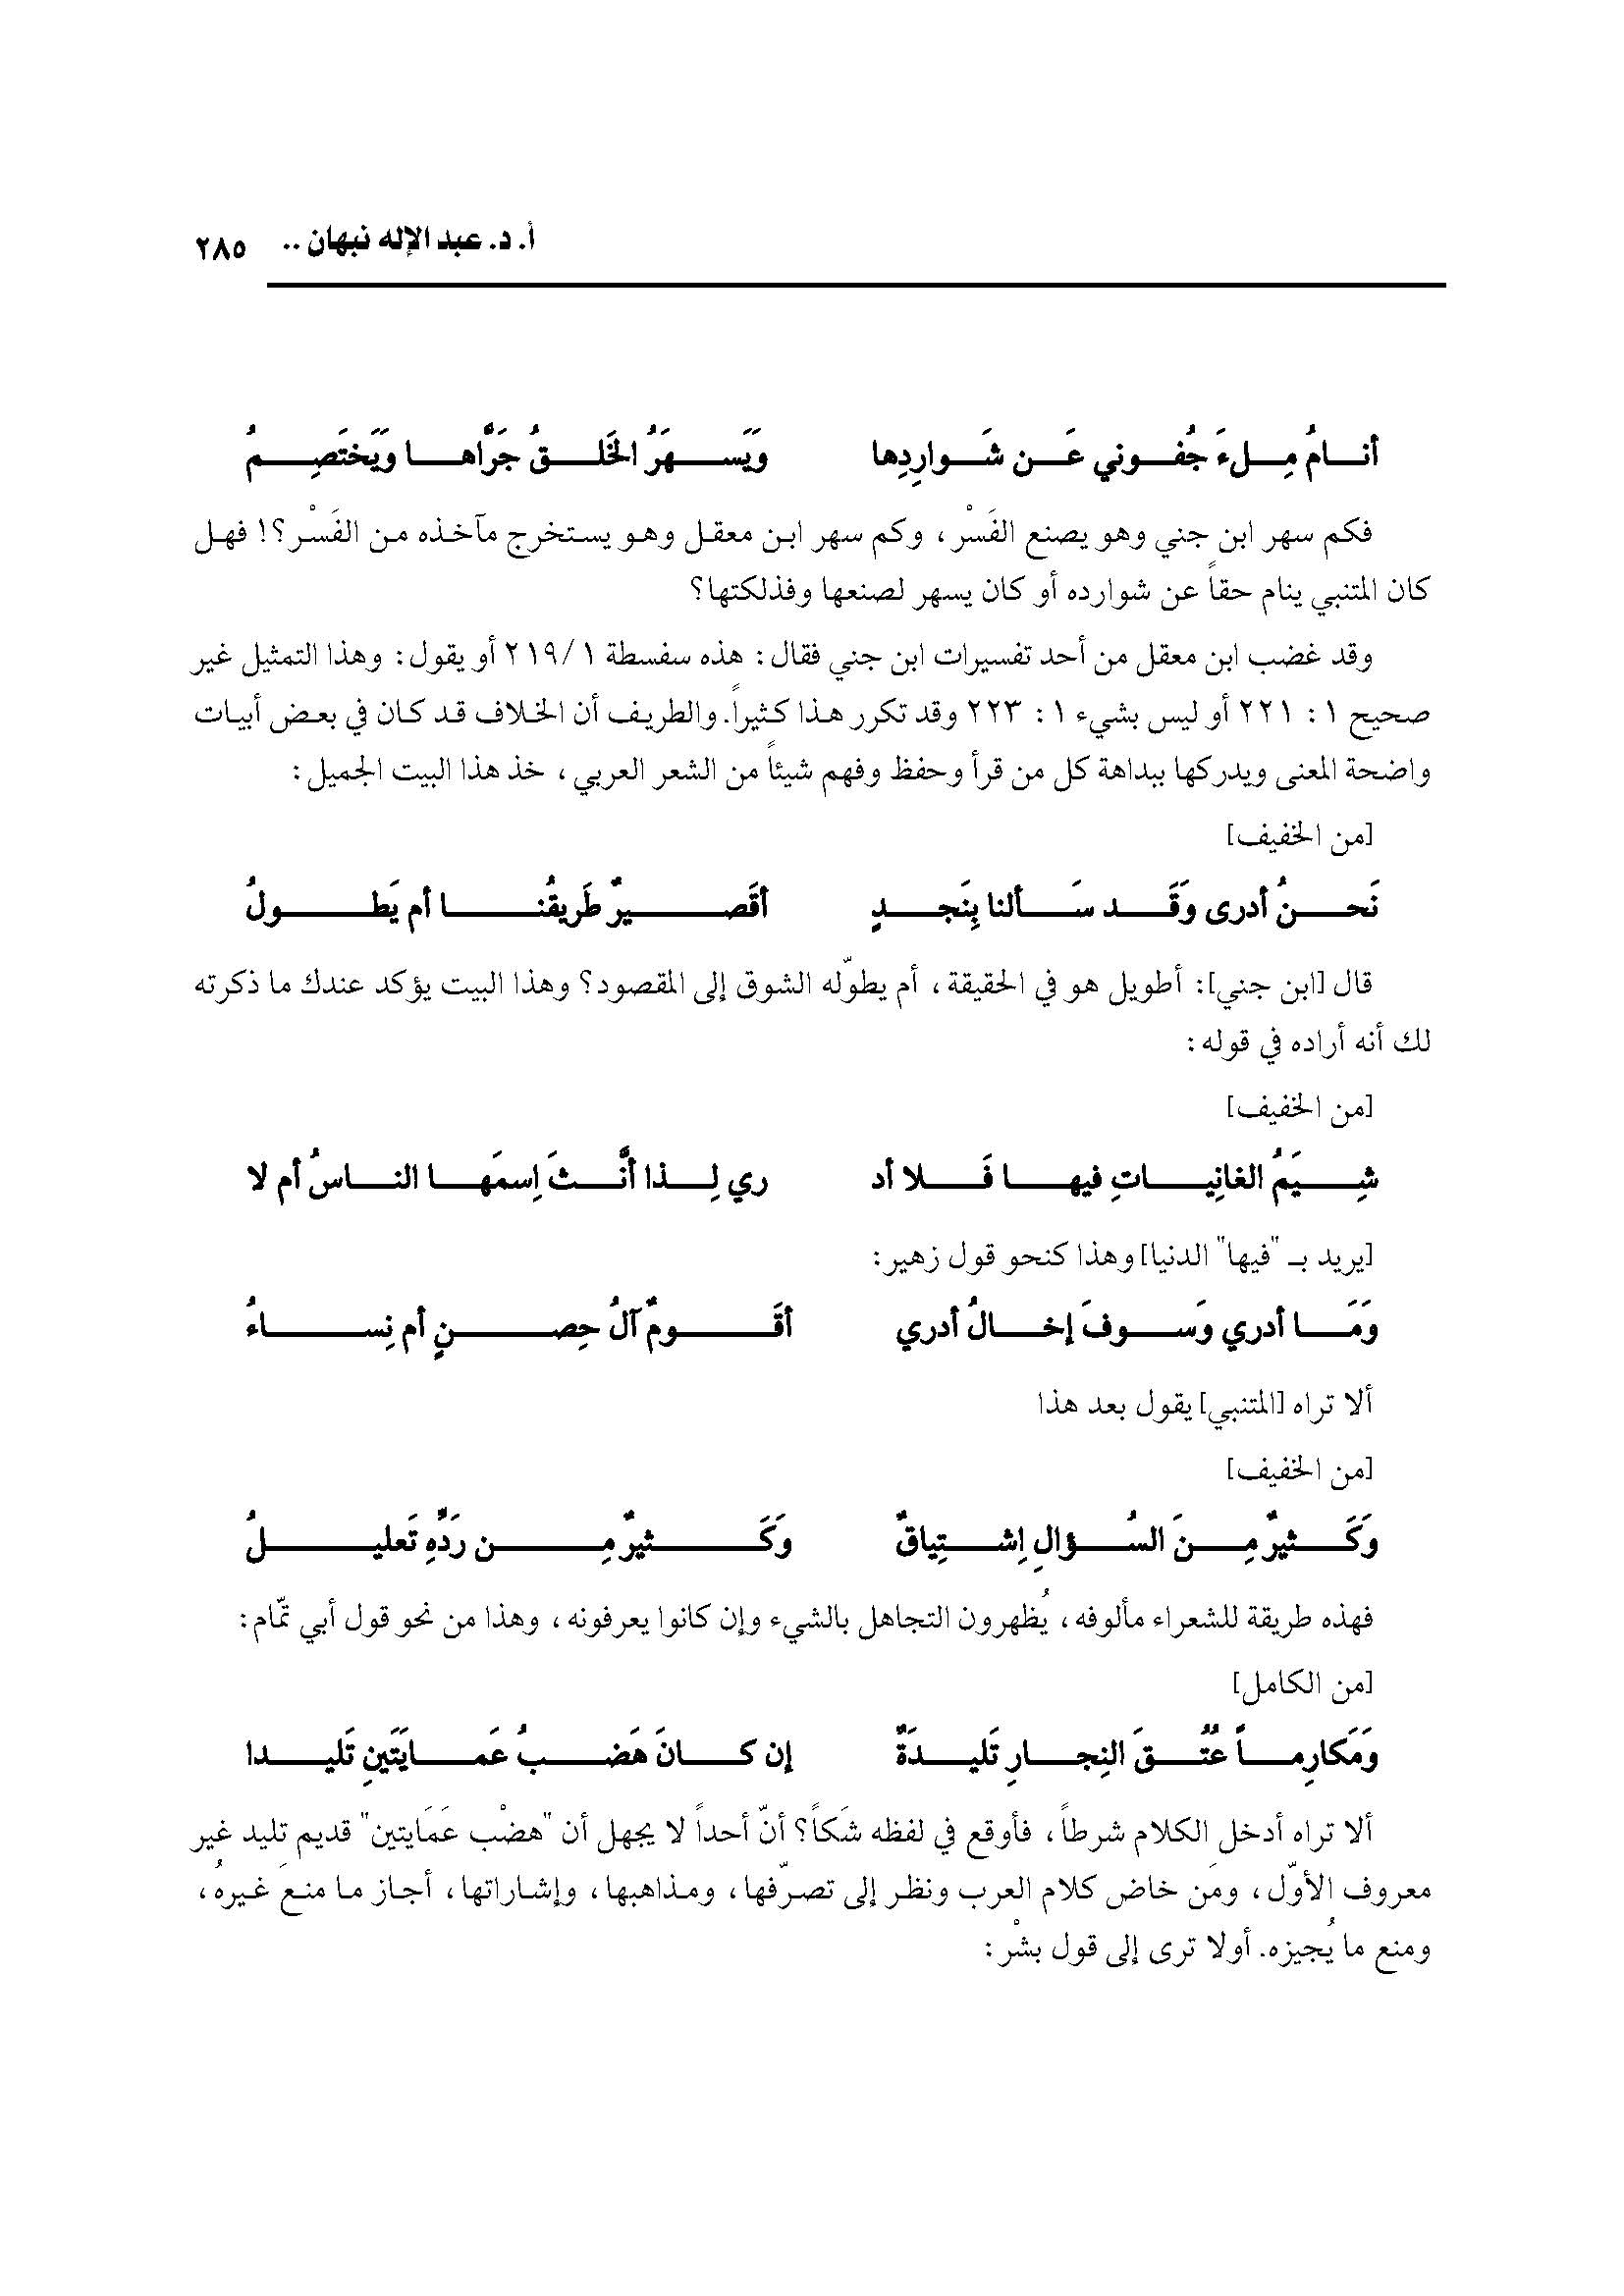 أ. د. عبد الإله نبهان .. ٢٨٥
أنامُ مِلءَ جُفوني عَن شَوارِدِها وَيَسهَرُ الخَلقُ جَرَّاها وَيَختَصِمُ
فكم سهر ابن جني وهو يصنع الفَسْر، وكم سهر ابن معقل وهو يستخرج مآخذه من الفَسْر؟! فهل
كان المتنبي ينام حقاً عن شوارده أو كان يسهر لصنعها وفذلكتها؟
وقد غضب ابن معقل من أحد تفسيرات ابن جني فقال: هذه سفسطة ٢١٩/١ أو يقول: وهذا التمثيل غير
صحيح ١: ٢٢١ أو ليس بشيء ١: ٢٢٣ وقد تكرر هذا كثيراً. والطريف أن الخلاف قد كان في بعض أبيات
واضحة المعنى ويدركها ببداهة كل من قرأ وحفظ وفهم شيئاً من الشعر العربي، خذ هذا البيت الجميل:
[من الخفيف]
نَحنُ أدرى وَقَد سَألنا بِنَجدٍ أقَصيرٌ طَريقُنا أم يَطولُ
قال [ابن جني]: أطويل هو في الحقيقة، أم يطوّله الشوق إلى المقصود؟ وهذا البيت يؤكد عندك ما ذكرته
لك أنه أراده في قوله:
[من الخفيف]
شِيَمُ الغانِياتِ فيها فَلا أد ري لِذا أنَّثَ اِسمَها الناسُ أم لا
[يريد بـ "فيها" الدنيا] وهذا كنحو قول زهير:
وَمَا أدري وَسوفَ إخالُ أدري أقَومٌ آلُ حِصنٍ أم نِساءُ
ألا تراه [المتنبي] يقول بعد هذا
[من الخفيف]
وَكَثيرٌ مِنَ السُؤالِ اِشتِياقٌ وَكَثيرٌ مِن رَدِّهِ تَعليلُ
فهذه طريقة للشعراء مألوفه، يُظهرون التجاهل بالشيء وإن كانوا يعرفونه، وهذا من نحو قول أبي تمّام:
[من الكامل]
وَمَكارِماً عُتُقَ النِجارِ تَليدَةً إن كانَ هَضبُ عَمايَتَينِ تَليدا
ألا تراه أدخل الكلام شرطاً، فأوقع في لفظه شَكاً؟ أنّ أحداً لا يجهل أن "هضْب عَمَايتين" قديم تليد غير
معروف الأوّل، ومَن خاض كلام العرب ونظر إلى تصرّفها، ومذاهبها، وإشاراتها، أجاز ما منعَ غيرهُ،
ومنع ما يُجيزه. أولا ترى إلى قول بشْر: